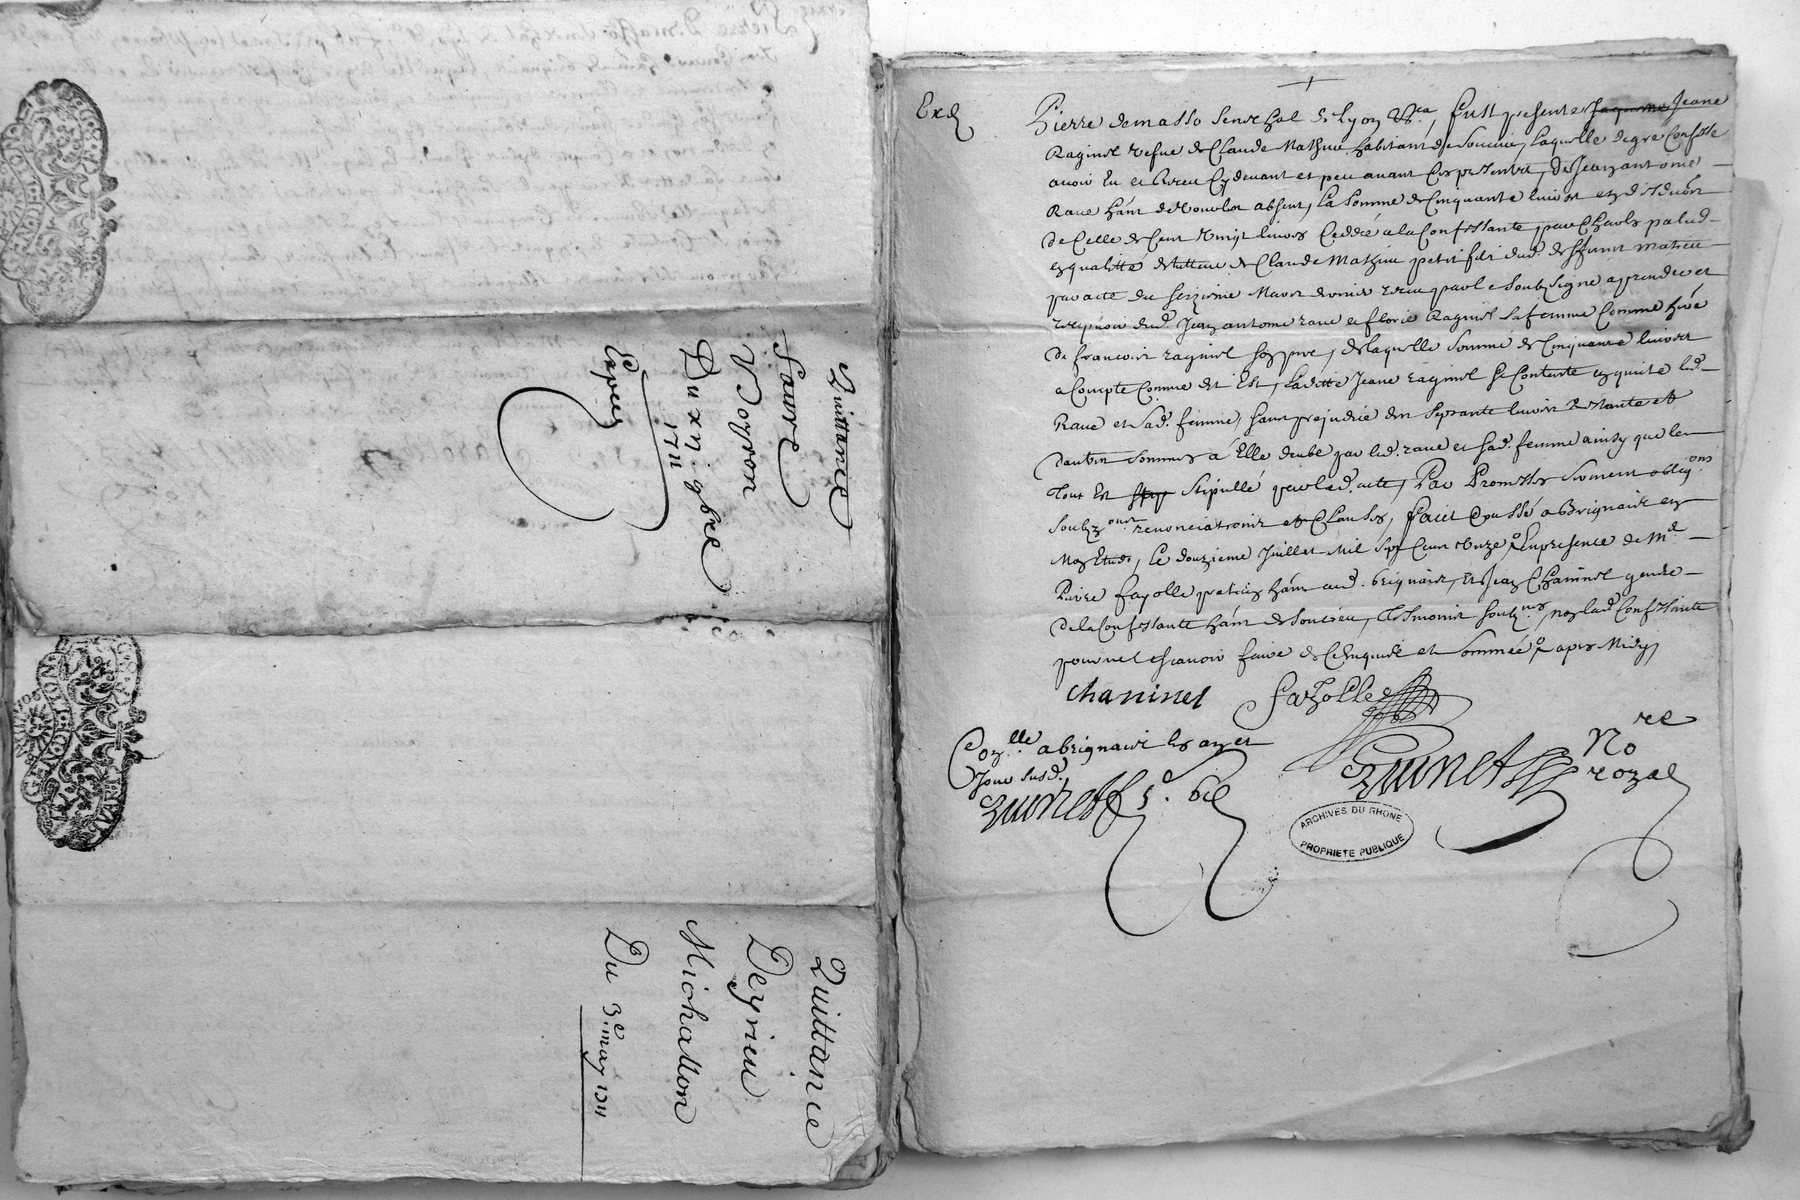 Quittance
Faure
Voyron
Du xij 9bre
1711
Expiee
Quittance
Deyrieu
Michallon
Du 3e may 1711
GENE
LION
GENER
LION
Exd
Pierre demasso Senechal de Lyon &ca, fust presente Jaqueme Jeane
Raginel vefve de Claude Mathieu habitant de Soucieu, Laquelle de gré Confesse
avoir Eu et Receu Cy devant et peu avant Ces presentes, de Jean antoine
Rave hânt de absent, La Somme de Cinquante livres en deduôn
de Celle de Cent vingt livres Ceddée a la Confessante par Charles palud
en qualitté de tutteur de Claude Mathieu petit fils dud. deffunt matieu
par acte du seizieme Mars dernier receu par le Soubsigne a prendre et
recepvoir dud. Jean antoine rave et florie Raginel Sa femme Comme hère
de francois raginel son pere, de laquelle Somme de Cinquante livres
a Compte Comme dit Est, Ladite Jeane raginel Se Contente en quitte led.
Rave et Sad. femme, Sans prejudice des Septante livres Restante et
dautres Sommes a Elle deube par led. rave et Sad. femme ainsy que le
Tout Est Stip Stipullé par led. acte, Par Promesses Serment obligons
Soubzons renonciations et Clauses, faict & passé a Brignais en
Mon Etude, Le douzieme Juillet Mil Sept Cent Unze En presence de Me
Pierre fayolle praticien hânt aud. brignais, Et Jean Chaninel gendre
de la Confessante hânt de Soucieu, tesmoins Soubznes, non lad. Confessante
pour ne le scavoir faire de Ce Enquise et Sommée apres Midy
chaninel fayolle
Conlle a brignais Les an et
Jour susd.
Brunet
Brunet
Nore
royal
ARCHIVES DU RHONE
PROPRIETE PUBLIQUE